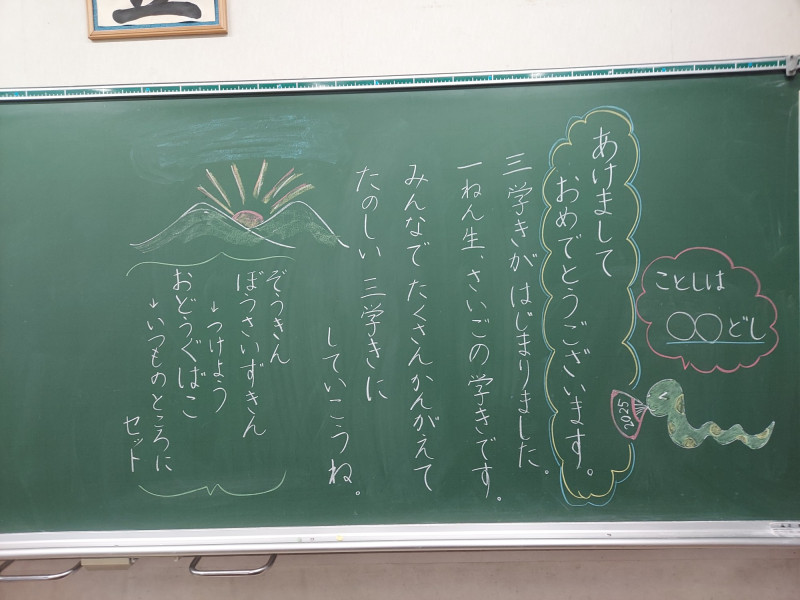 ことしは
〇〇どし
2025
あけまして
おめでとうございます。
三学きがはじまりました。
一ねん生、さいごの学きです。
みんなでたくさんかんがえて
たのしい三学きに
していこうね。
ぞうきん
ぼうさいずきん
↓つけよう
おどうぐばこ
↓いつものところに
セット